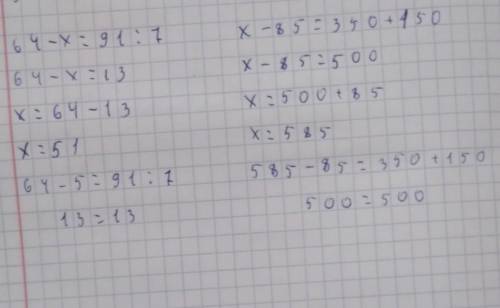 64-x=91:7
64-x=13
x=64-13
x=51
64-5=91:7
13=13
x-85=350+150
x-85=500
x=500+85
x=585
585-85=350+150
500=500